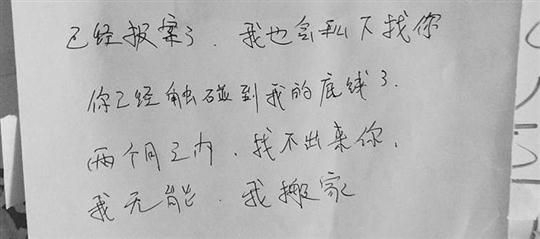 已经报案了．我也会私下找你
你已经触碰到我的底线了．
两个月之内．找不出来你．
我无能．我搬家